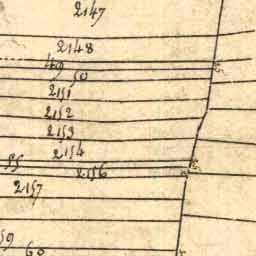 2147
2148
49
50
2151
2152
2153
2154
55
2156
2157
59
60